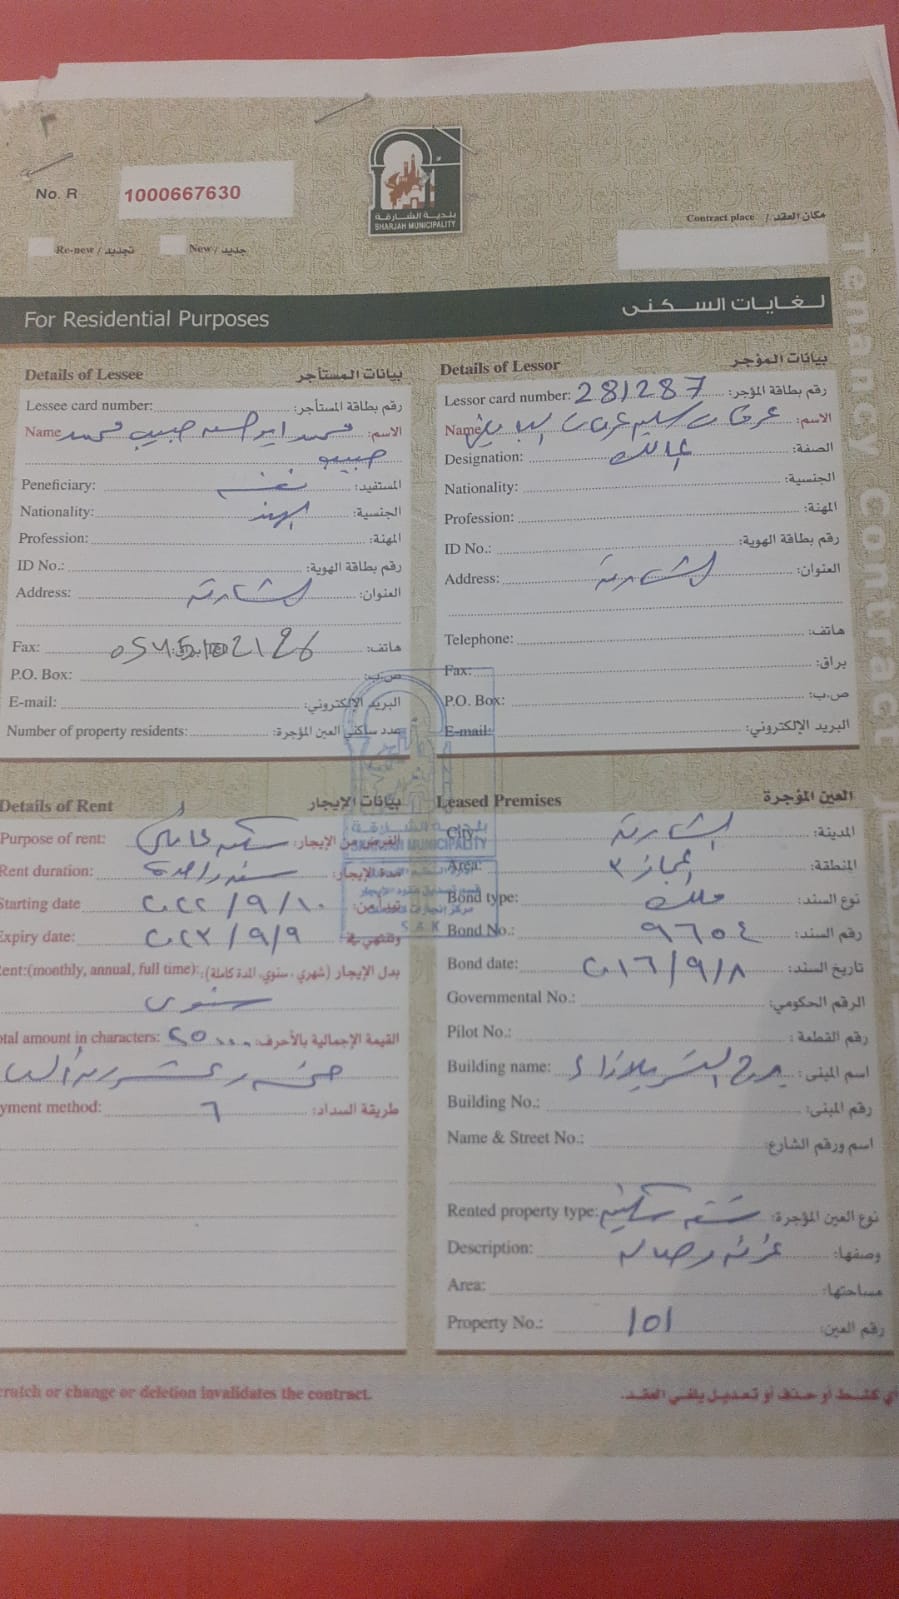 ٣
No. R 1000667630
بلدية الشارقة
SHARJAH MUNICIPALITY
Contract place / مكان العقد
Re-new / تجديد New / جديد
Tenancy Contract
For Residential Purposes لغايات السكنى
Details of Lessee بيانات المستأجر
Lessee card number: رقم بطاقة المستأجر:
Name الاسم: محمد حبيب محمد
حبيب
Peneficiary: المستفيد: نفسه
Nationality: الجنسية: الهند
Profession: المهنة:
ID No.: رقم بطاقة الهوية:
Address: العنوان: الشارقة
Fax: هاتف:
P.O. Box: ص.ب:
E-mail: البريد الإلكتروني:
Number of property residents: عدد ساكني العين المؤجرة:
Details of Lessor بيانات المؤجر
Lessor card number: 281287 رقم بطاقة المؤجر:
Name الاسم: سليم عرفات
Designation: الصفة: المالك
Nationality: الجنسية:
Profession: المهنة:
ID No.: رقم بطاقة الهوية:
Address: العنوان: الشارقة
Telephone: هاتف:
Fax: براق:
P.O. Box: ص.ب:
E-mail: البريد الإلكتروني:
Details of Rent بيانات الإيجار
Purpose of rent: الغرض من الإيجار: سكن عائلي
Rent duration: مدة الإيجار: سنة واحدة
Starting date تبدأ من: ٢٠٢٢/٩/١٠
Expiry date: وتنتهي في: ٢٠٢٣/٩/٩
ent:(monthly, annual, full time): بدل الإيجار (شهري، سنوي، المدة كاملة):
سنوي
otal amount in characters: القيمة الإجمالية بالأحرف: ٢٥٠٠٠
خمسة وعشرون ألف
yment method: طريقة السداد: ٦
Leased Premises العين المؤجرة
City: المدينة: الشارقة
Area: المنطقة: المجاز ٣
Bond type: نوع السند: ملك
Bond No.: رقم السند: ٩٦٥٤
Bond date: تاريخ السند: ٢٠١٦/٩/٨
Governmental No.: الرقم الحكومي:
Pilot No.: رقم القطعة:
Building name: اسم المبنى: برج
Building No.: رقم المبنى:
Name & Street No.: اسم ورقم الشارع:
Rented property type: نوع العين المؤجرة: شقة سكنية
Description: وصفها: غرفة وصالة
Area: مساحتها:
Property No.: رقم العين: ١٥١
بلدية الشارقة
SHARJAH MUNICIPALITY
S.A.K
cratch or change or deletion invalidates the contract. أي كشط أو حذف أو تعديل يلغي العقد.